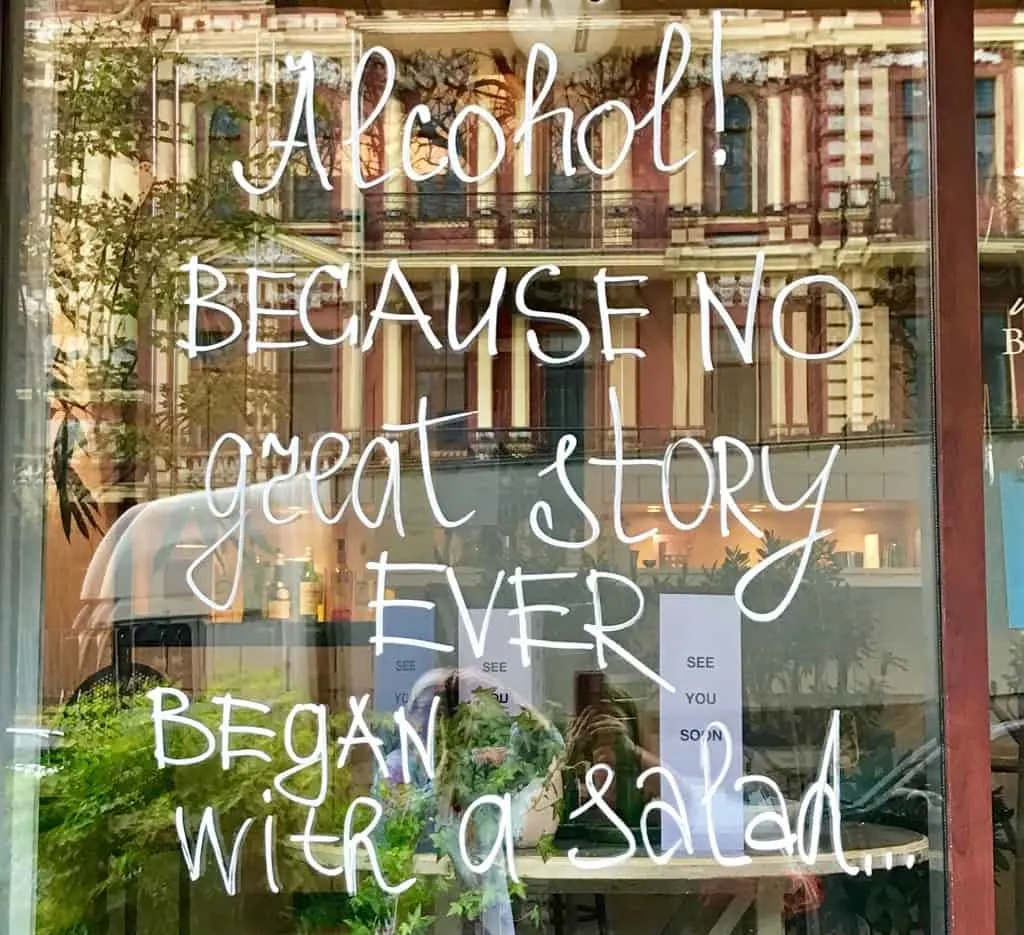 Alcohol!
BECAUSE NO
great story
EVER
BEgAN
with a salad...
SEE
YOU
SOON
SEE
SEE